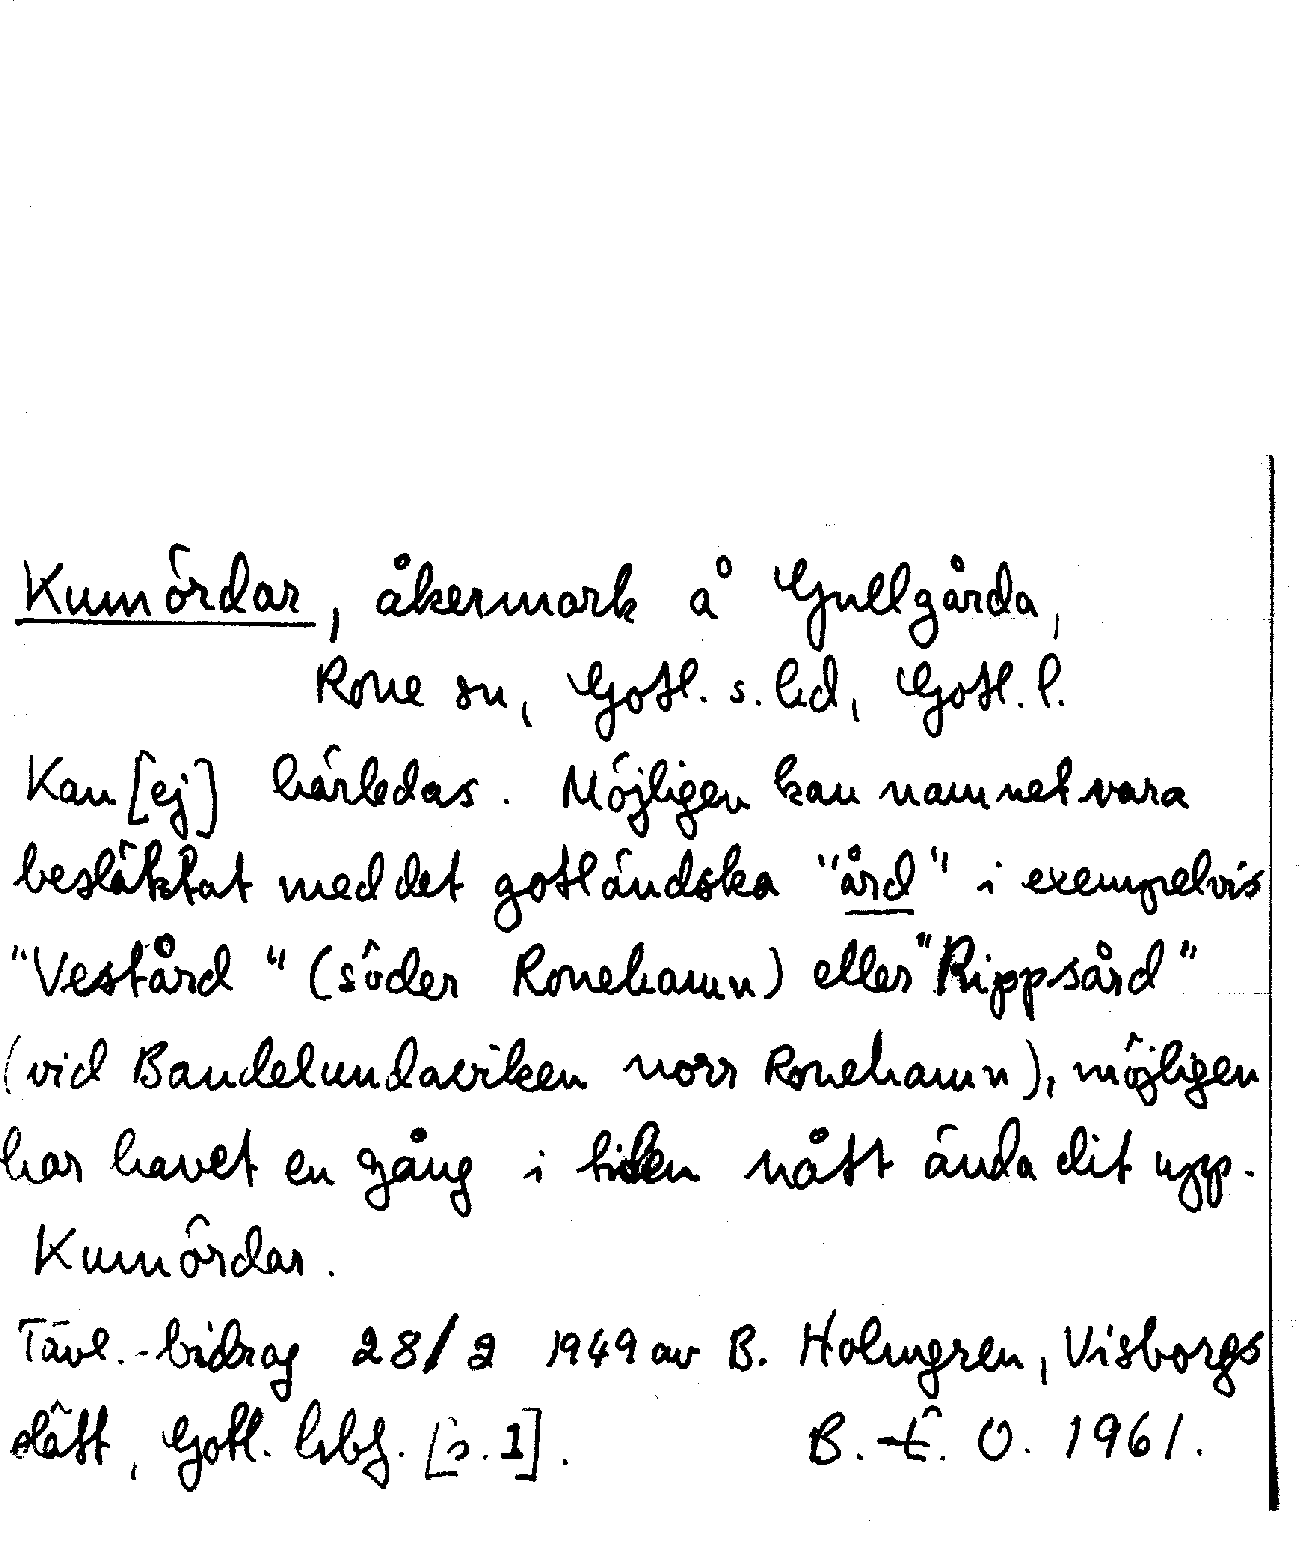 Kumördar, åkermark å Gullgårda,
Rone sn, Gotl. s. hd, Gotl. l.
Kan [ej] härledas. Möjligen kan namnet vara
besläktat med det gotländska "ård" i exempelvis
"Vestård" (söder Ronehamn) eller "Rippsård"
(vid Bandelundaviken norr Ronehamn), möjligen
har havet en gång i tiden nått ända dit upp.
Kumördar.
Tävl.-bidrag 28/2 1949 av B. Holmgren, Visborgs
slätt, Gotl. [s. 1]. B. O. 1961.